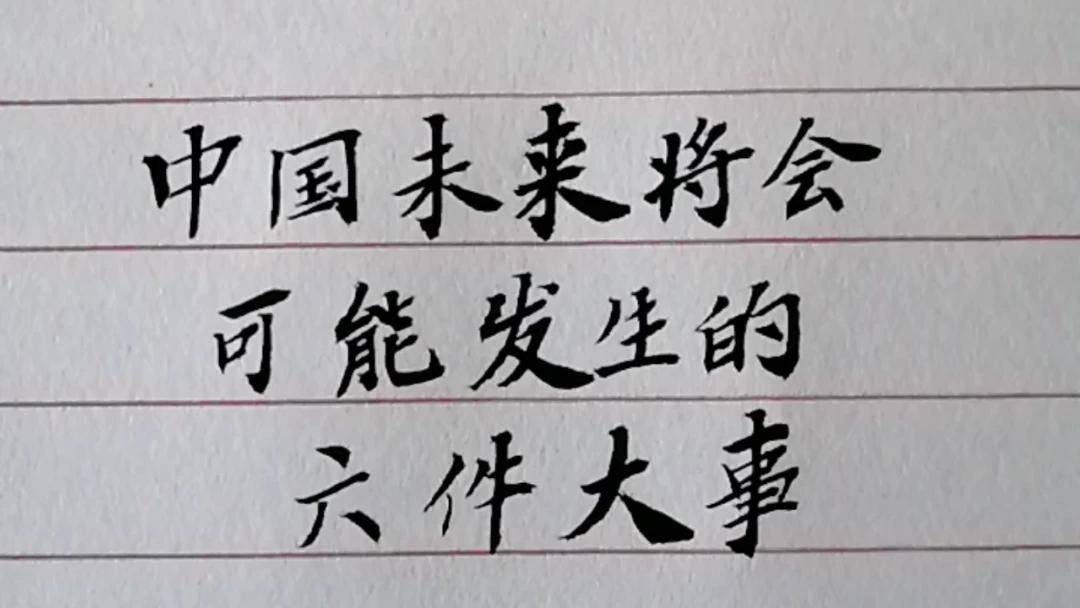 中国未来将会
可能发生的
六件大事